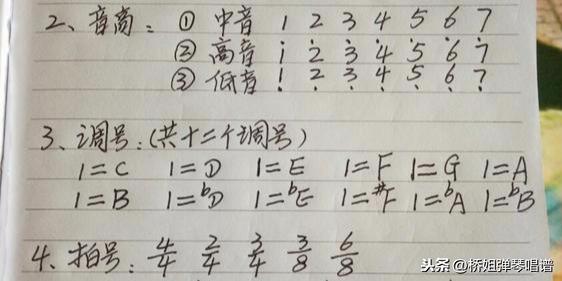 2、音高：① 中音 1 2 3 4 5 6 7
② 高音 i 2̇ 3̇ 4̇ 5̇ 6̇ 7̇
③ 低音 1̣ 2̣ 3̣ 4̣ 5̣ 6̣ 7̣
3、调号：(共十二个调号)
1=C 1=D 1=E 1=F 1=G 1=A
1=B 1=ᵇD 1=ᵇE 1=#F 1=ᵇA 1=ᵇB
4、拍号：4/4 2/4 3/4 3/8 6/8
头条@桥姐弹琴唱谱